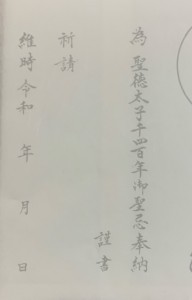 為聖徳太子千四百年御聖忌奉納
謹書
祈請
維時令和 年 月 日